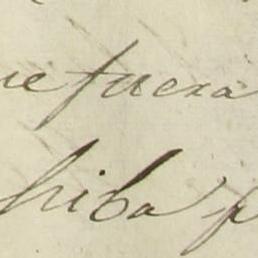 ue fuera
hiba p